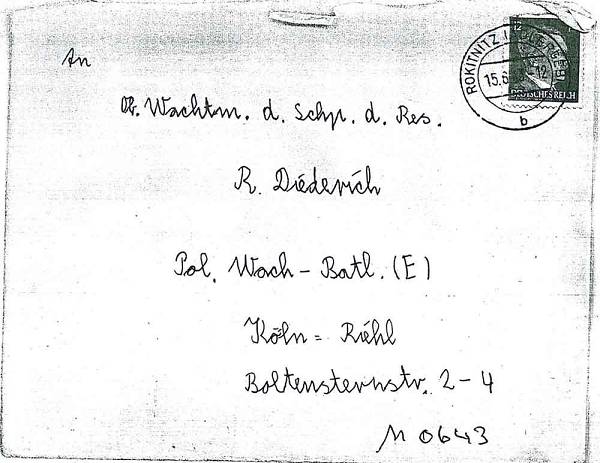 An
ROKITNITZ
15.6
b
DEUTSCHES REICH
Ob. Wachtm. d. Schp. d. Res.
R. Diederich
Pol. Wach - Batl. (E)
Köln = Riehl
Boltensternstr. 2 - 4
M 0643